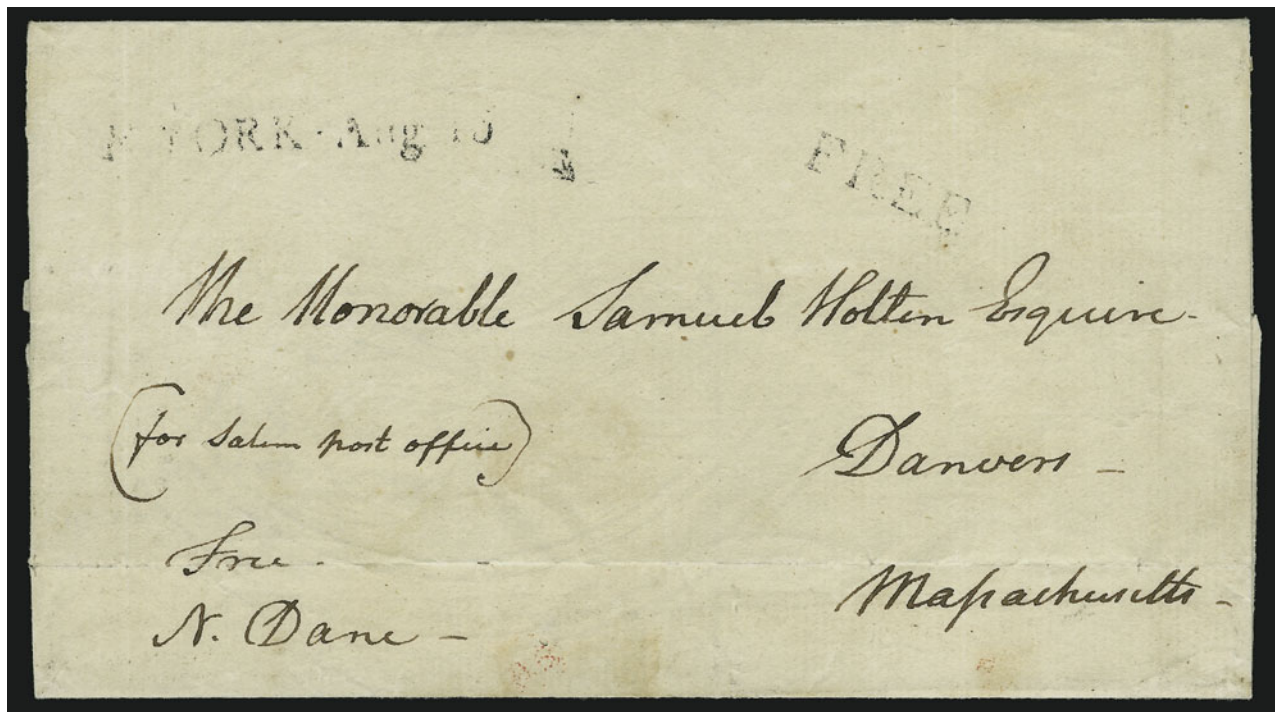 YORK Aug
FREE
The Honorable Samuel Holten Esquire-
(for Salem post office)
Danvers -
Free.
Massachusetts -
N. Dane -